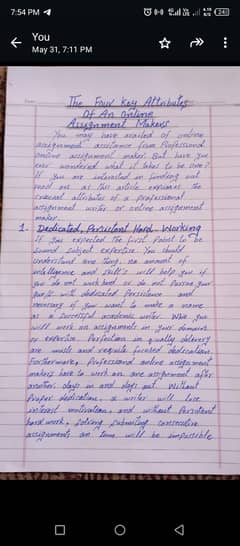 7:54 PM
You
May 31, 7:11 PM
The Four Key Attributes
Of An Online
Assignment Makers
You may have availed of online
assignment assistance from Professional
online assignment maker. But have you
ever wondered what it takes to be one?
If you are interested in finding out
read on as this article explains the
crucial attributes of a professional
assignment writer or online assignment
maker.
1. Dedicated, Persistant Hard-Working
If you expected the first point to be
sound subject expertise. You should
understand one thing, no amount of
intelligence and skill's will help you if
you do not work hard or do not pursue your
goals with dedicated Persistence and
necessary if you want to make a name
as a successful academic writer. Who you
will work on assignments in your domain
of expertise. Perfection in quality delivery
are must and require focused dedication.
Furthermore, Professional online assignment
makers have to work on one assignment after
another, days in and days out. Without
Proper dedication, a writer will lose
interest motivation, and without Persistent
hard work, solving submitting consecutive
assignments on time will be impossible